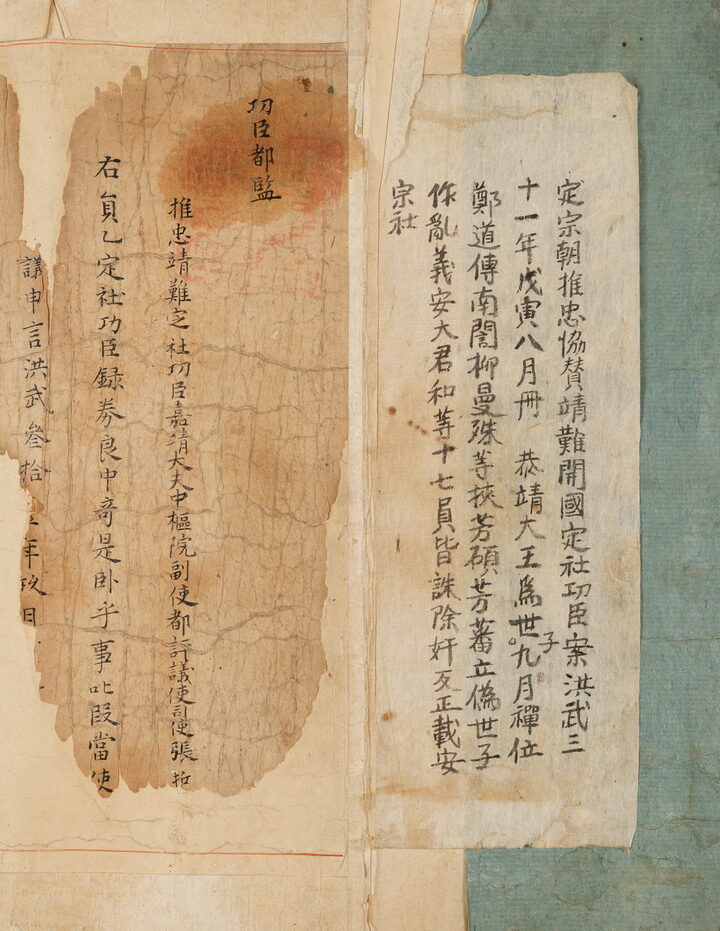 定宗朝推忠協贊靖難開國定社功臣案洪武三
十一年戊寅八月冊 恭靖大王爲世子九月禪位
鄭道傳南誾柳曼殊等挾芳碩芳蕃立僞世子
作亂義安大君和等十七員皆誅除奸反正載安
宗社
功臣都監
推忠靖難定社功臣嘉靖大夫中樞院副使都評議使司使張
右員乙定社功臣録券良中竒是卧乎事叱段當使
議申言洪武叄拾 年 月